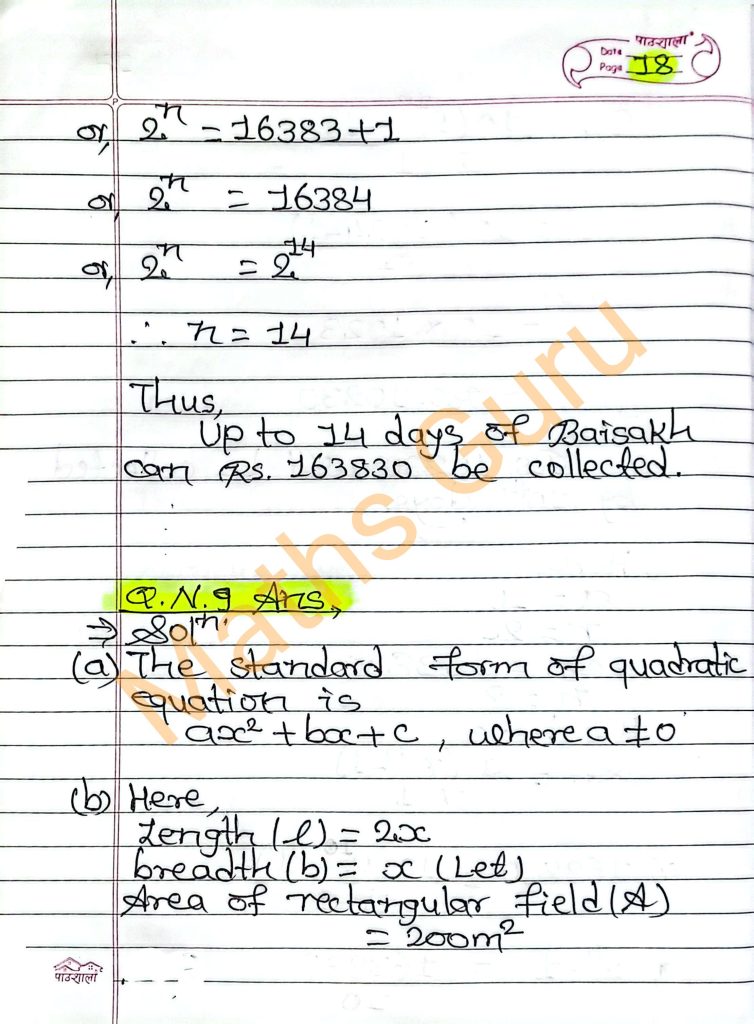 पाठशाला
Date
Page 18
or, 2ⁿ = 16383+1
or, 2ⁿ = 16384
or, 2ⁿ = 2¹⁴
∴ n = 14
Thus,
Up to 14 days of Baisakh
can Rs. 163830 be collected.
Maths Guru
Q.N.9 Ans,
⇒ Solⁿ:
(a) The standard form of quadratic
equation is
ax² + bx + c , where a ≠ 0
(b) Here,
Length (l) = 2x
breadth (b) = x (Let)
Area of rectangular field (A)
= 200m²
पाठशाला